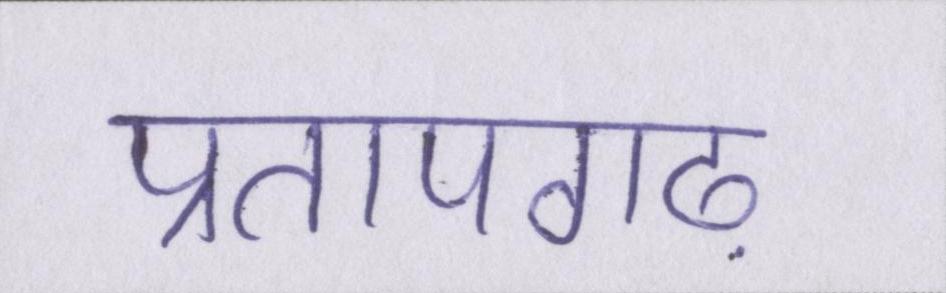 प्रतापगढ़